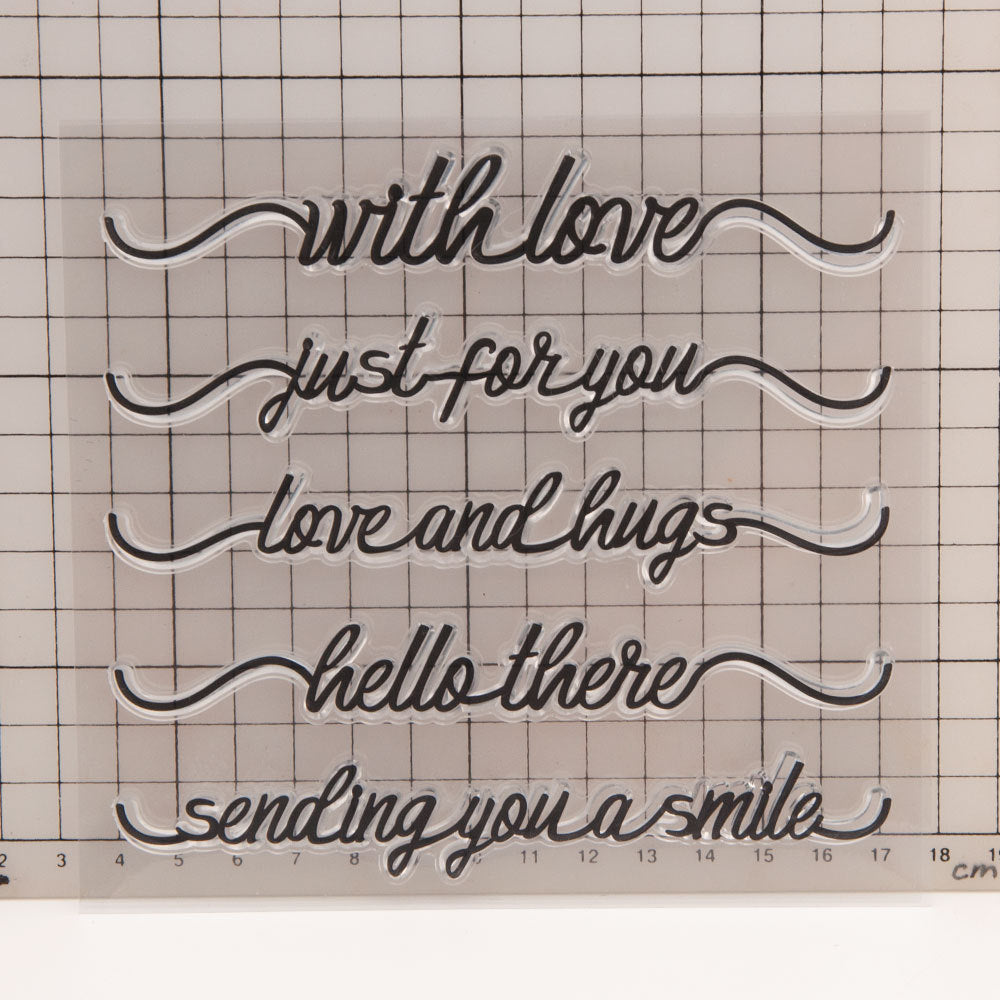 with love
just for you
love and hugs
hello there
sending you a smile
2 3 4 5 6 7 8 9 10 11 12 13 14 15 16 17 18 19
cm